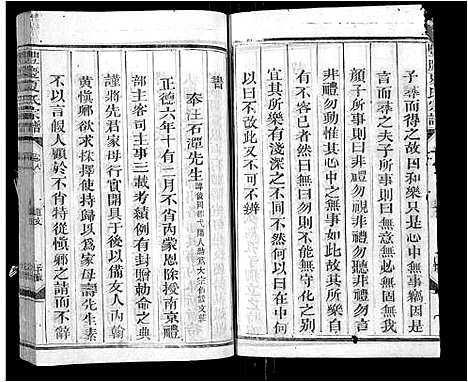 予尋而得之故因和樂只是心中無事竊因是
言而尋之夫子所事則曰無意無必無固無我
顏子所事則曰非禮勿視非禮勿聽非禮勿言
非禮勿動其心中之無事如此然夫子曰樂在
其中於顏曰不改其樂
不容有已者然曰無曰勿則不能無守化之別
宜其所樂有淺深之不同故一則曰在其中一
則曰不改此文不可不辨
書
奉汪石潭先生
正德六年十有二月不肖內蒙恩除授南京禮
部主客司主事三載考績例有封贈勅命之典
謹將先君家母行實開具于後以備友人內翰
黃愼卿欲求採擇使持歸以爲家母壽先生素
不以言假人願於不肖特從愼卿之請而不辭